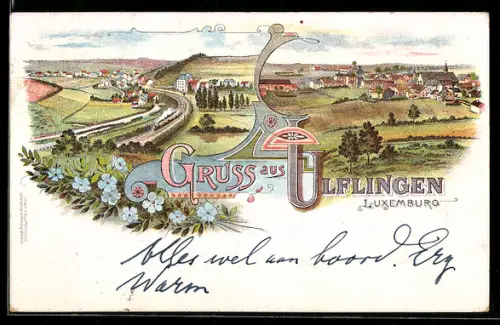 GRUSS aus ULFLINGEN
LUXEMBURG
Alles wel aan boord. Erg
Warm